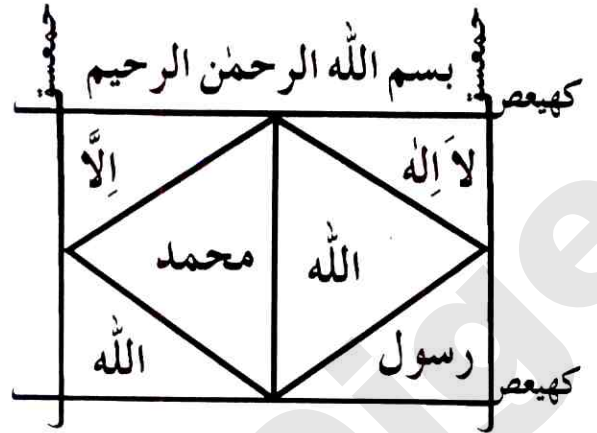 حمعسق
حمعسق
بسم الله الرحمٰن الرحيم
كهيعص
لاَ اِلٰهَ
اِلَّا
الله
محمد
رسول
الله
كهيعص